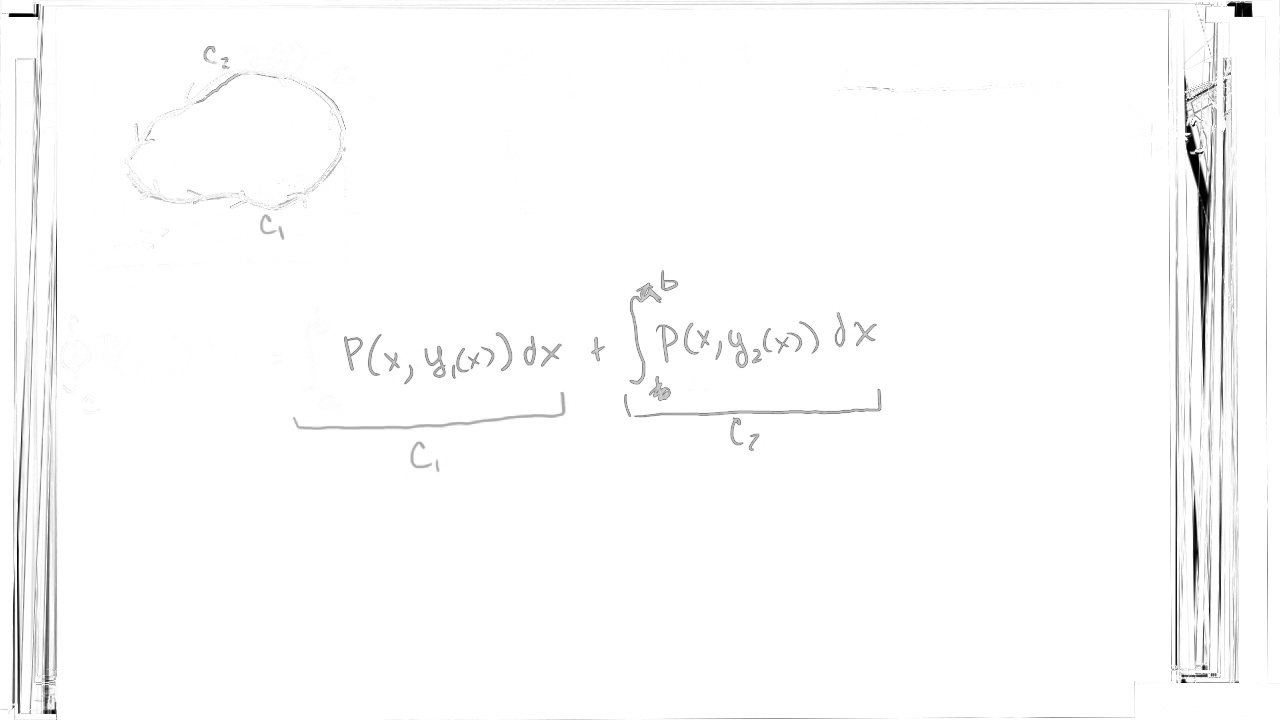 C₂
C₁
P(x, y₁(x)) dx + ∫ᵇ P(x, y₂(x)) dx
C₁ C₂